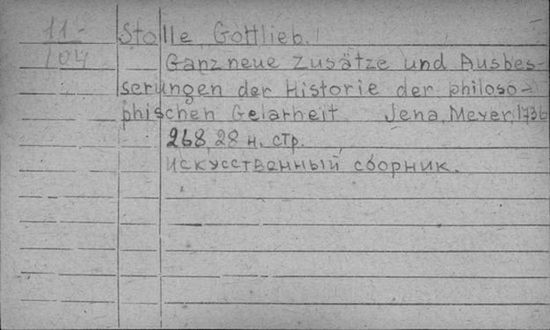 11-
104
Stolle, Gottlieb.
Ganz neue Zusätze und Ausbes-
serungen der Historie der philoso-
phischen Gelarheit Jena, Meyer, 1736
268, 28 н. стр.
искусственный сборник.